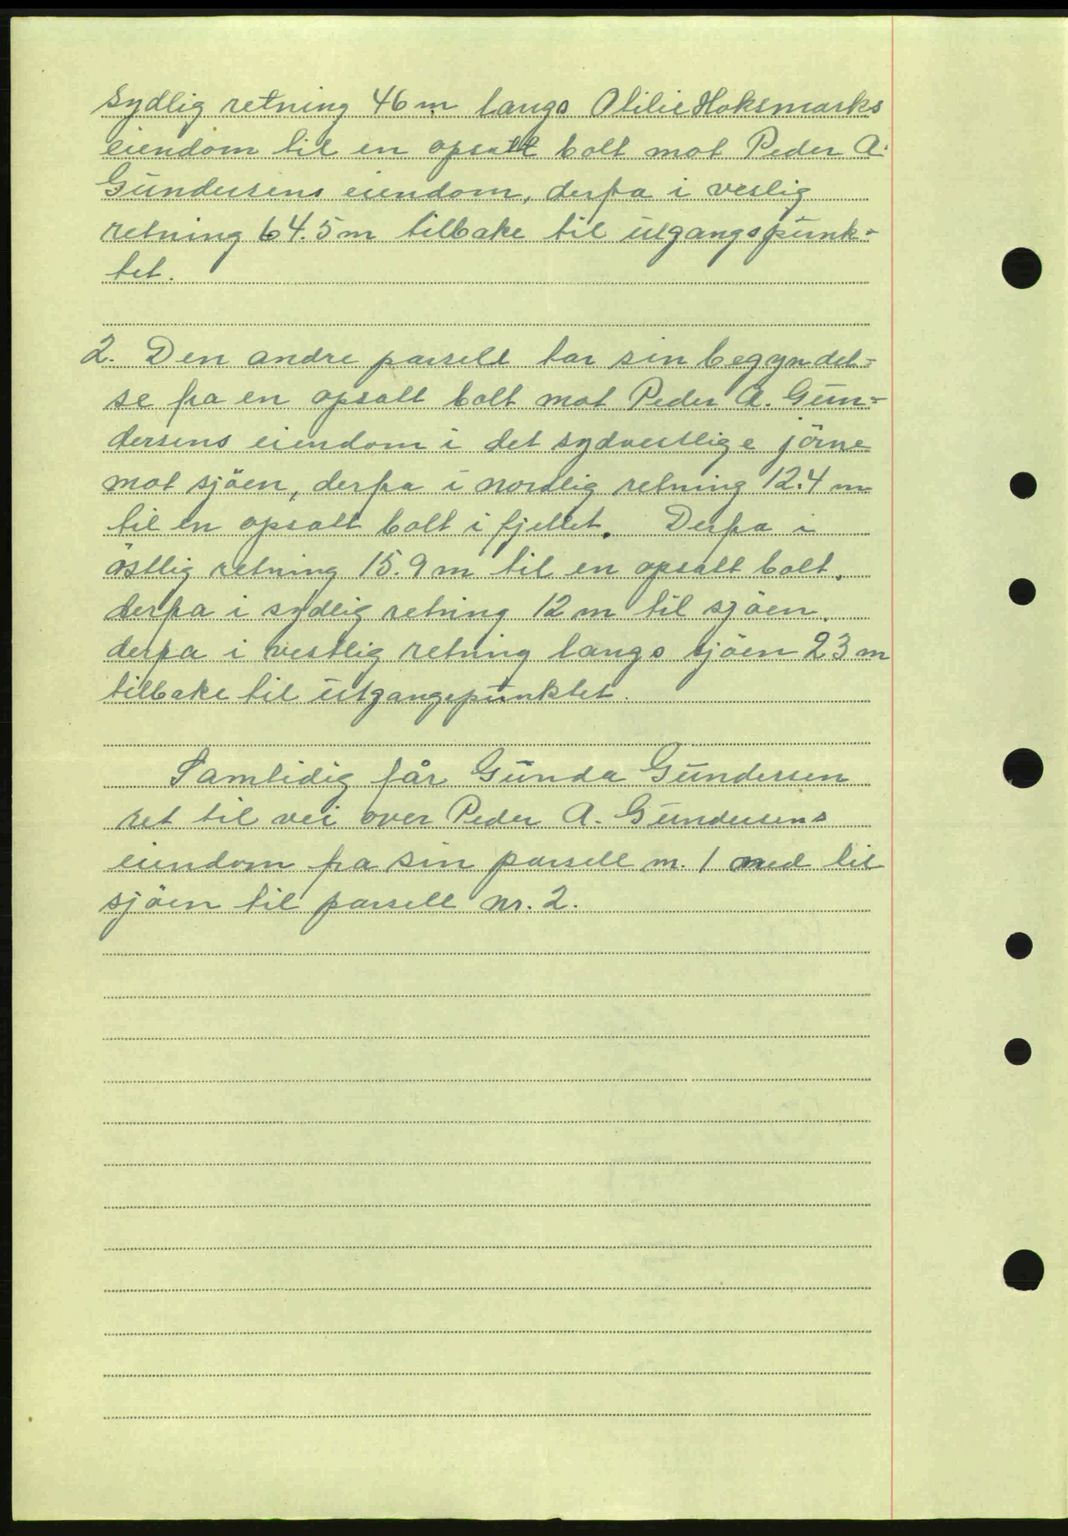 sydlig retning 46 m langs Otilie Hoksmarks
eiendom til en opsatt bolt mot Peder A.
Gundersens eiendom, derfra i vestlig
retning 64.5 m tilbake til utgangspunk-
tet.
2. Den andre parsell tar sin begyndel-
se fra en opsatt bolt mot Peder A. Gun-
dersens eiendom i det sydvestlige jörne
mot sjöen, derfra i nordlig retning 12.4 m
til en opsatt bolt i fjellet. Derfra i
östlig retning 15.9 m til en opsatt bolt.
derfra i sydlig retning 12 m til sjöen.
derfra i vestlig retning langs sjöen 23 m
tilbake til utgangspunktet.
Samtidig får Gunda Gundersen
ret til vei over Peder A. Gundersens
eiendom fra sin parsell nr. 1 ned til
sjöen til parsell nr. 2.